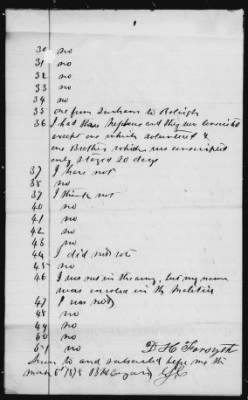 30 no
31 no
32 no
33 no
34 no
35 one from Durham to Raleigh
36 I had three Nephews and they were conscripted
except one which volunteered &
one Brother which was conscripted
only stayed 20 days
37 I have not
38 no
39 I think not
40 no
41 no
42 no
43 no
44 I did not vote
45 no
46 I was not in the army, but my name
was enroled in the Melitia
47 I was not
48 no
49 no
50 no
51 no
D H Forsyth
Sworn to and subscribed before me this